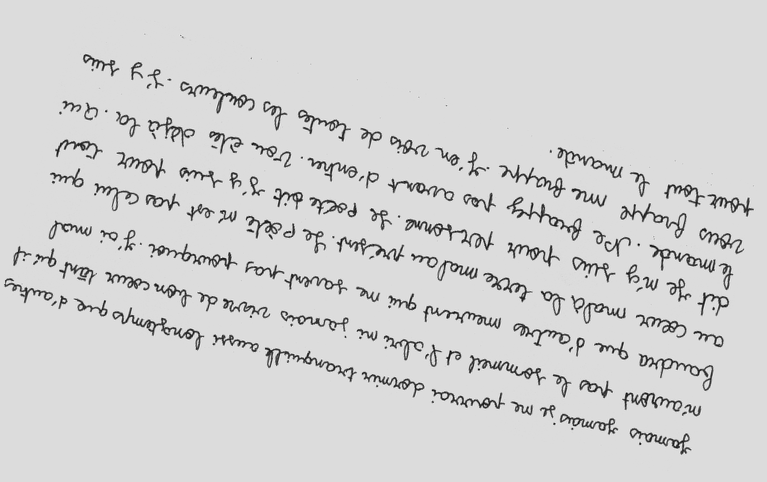 Jamais jamais je ne pourrai dormir tranquille aussi longtemps que d'autres
n'auront pas le sommeil et l'abri ni jamais vivre de bon cœur tant qu'il
faudra que d'autres meurent qui ne savent pas pourquoi. J'ai mal
au cœur mal à la terre mal au présent. Le poète n'est pas celui qui
dit Je n'y suis pour personne. Le poète dit J'y suis pour tout
le monde. Ne frappez pas avant d'entrer. Vous êtes déjà là. Qui
vous frappe me frappe. J'en vois de toutes les couleurs. J'y suis
pour tout le monde.